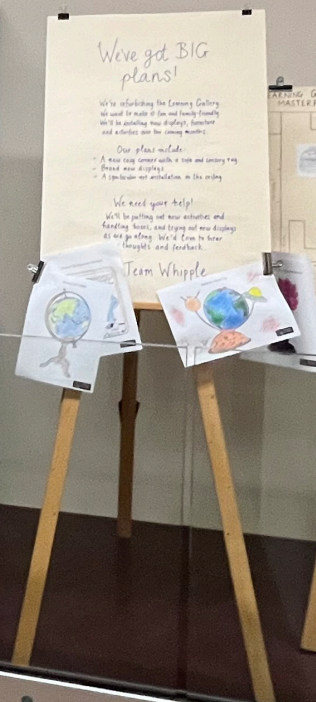 We've got BIG
plans!
We're refurbishing the Learning Gallery.
We want to make it fun and family-friendly
We'll be installing new displays, furniture
and activities over the coming months.
Our plans include:
- A new cosy corner with a sofa and sensory rug
- Brand new displays
- A spectacular art installation in the ceiling
We need your help!
We'll be putting out new activities and
handling boxes, and trying out new displays
as we go along. We'd love to hear
thoughts and feedback.
Team Whipple
LEARNING G
MASTERP